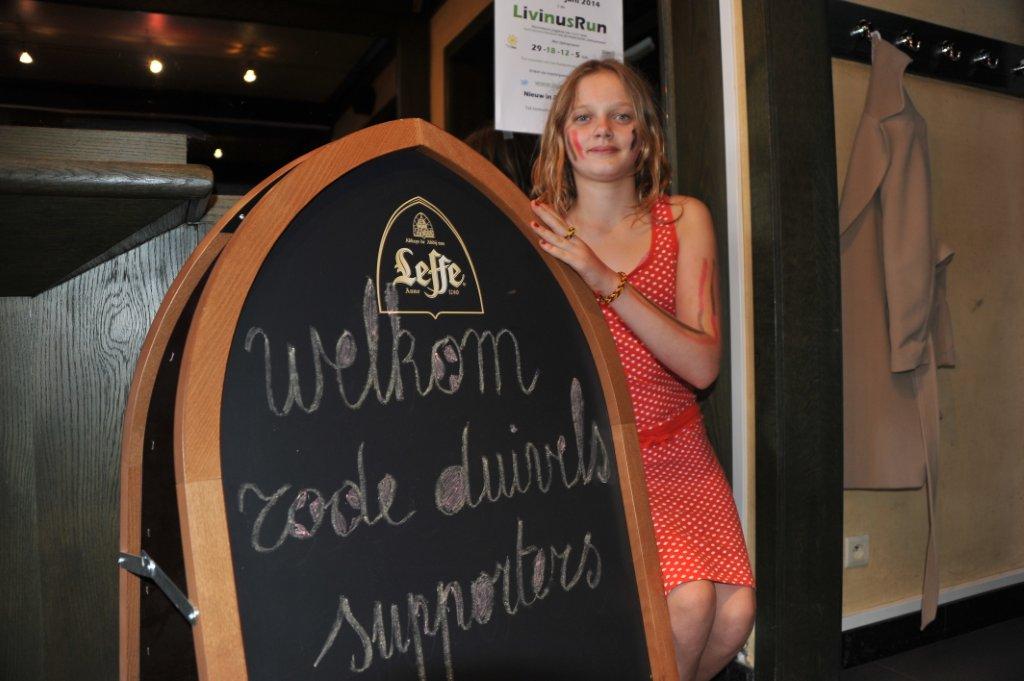 juni 2014
LivinusRun
29-18-12-5
Nieuw in
Leffe
Anno 1240
welkom
rode duivels
supporters